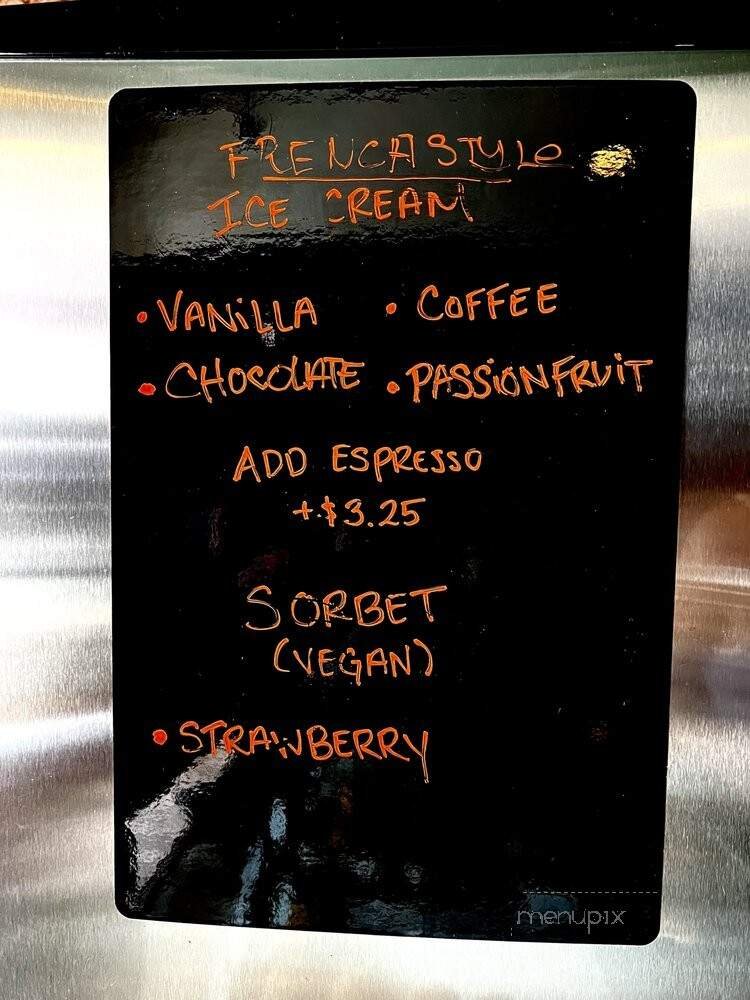 FRENCH STYLE
ICE CREAM
• VANiLLA • COFFEE
• CHOCOLATE • PASSiONFRUiT
ADD ESPRESSO
+$3.25
SORBET
(VEGAN)
• STRAWBERRY
menupix